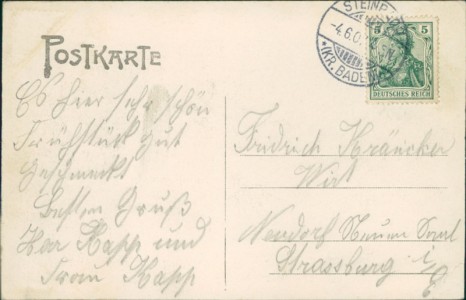 POSTKARTE
STEINB
-4.6.0
*(KR. BADEN
5 5
DEUTSCHES REICH
Es hier sehr schön
Frühstück gut
Geschmeckt
Besten Gruß
Herr Kapp und
Frau Kapp
Fridrich
Wirt
Neudorf Neuen
Strassburg i/E